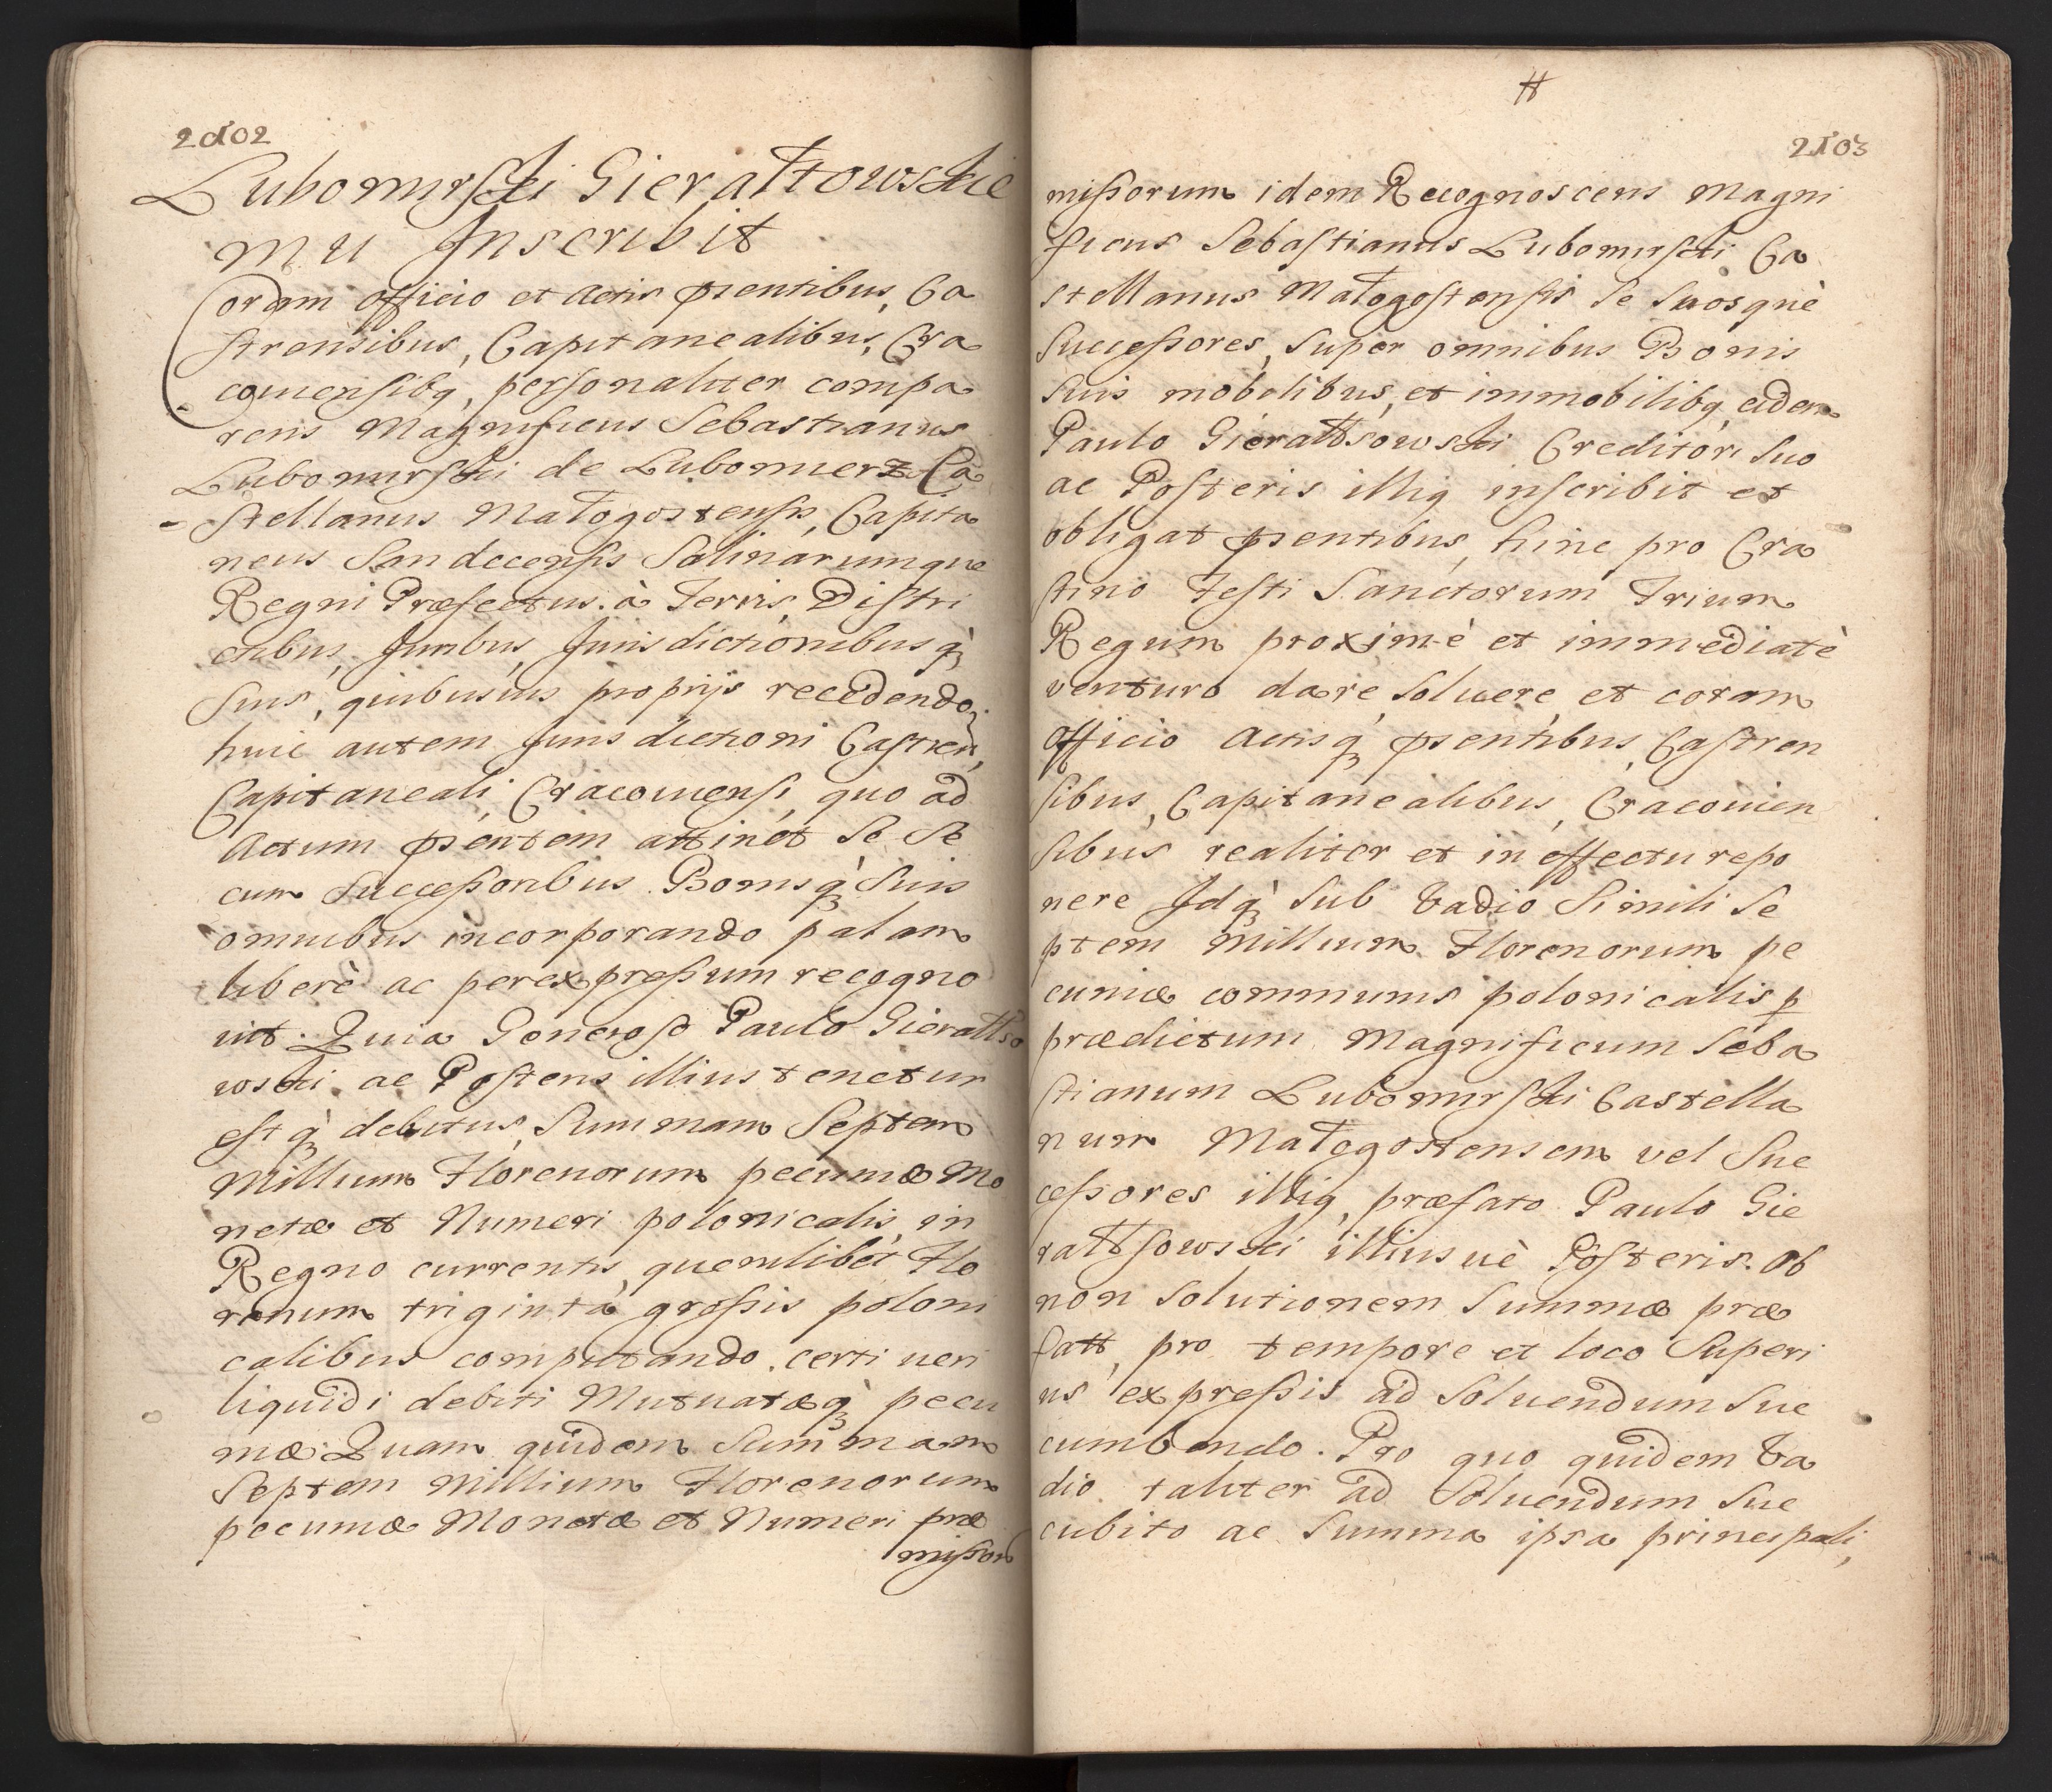 2102
Lubomirski Gierałtowskie
mu Inscribit
Coram officio et actis pſentibus, Ca
ſtrensibus, Capitanealibus, Cra
couiensibq, personaliter compa
rens Magnificus Sebastianus
Lubomirſki de Lubomierz Ca
ſtellanus Małogostensis, Capita
neus Sandecensis Salinarumque
Regni Præfectus. à Terris, Diſtri
ctibus, Juribus, Jurisdictionibusq̀
Suis, quibusuis proprijs recedendo,
huic autem Jurisdictioni Caſtren,
Capitaneali, Cracouiensi, quo ad
Actum pſentem attinet Se Se
cum Succeſsoribus Bonisq̀ Suis
omnibus incorporando palam
liberè ac perexpreſsum recogno
uit. Quia Generoso Paulo Gierałtſo
wski. ac Poſteris illius tenetur
eſtq̀ debitus, Summam Septem
Millium Florenorum pecuniæ Mo
netæ et Numeri polonicalis, in
Regno currentis, quemlibet Flo
renum triginta groſsis poloni
calibus computando. certi ueri
liquidi debiti Mutuatæq̀ pecu
niæ. Quam quidem Summam
Septem Millium Florenorum
pecuniæ Monetæ et Numeri præ
miſsor
#
2103
miſsorum idem Recognoscens Magni
ficus Sebaſtianus Lubomirſki Ca
stellanus Małogoſtenſis Se Suosquè
Succeſsores, Super omnibus Bonis
Suis mobolibus, et immobilibq, eidem
Paulo Gierałtsowski Creditori Suo
ac Poſteris illiq inſcribit et
obligat pſentibus, hinc pro Cra
ſtino Feſti Sanctorum Trium
Regum proximè et immediatè
venturo dare, Soluere, et coram
officio Actisq̀ pſentibus, Caſtren
ſibus, Capitanealibus, Cracouien
ſibus realiter et in effectu repo
nere Idq̀ Sub Vadio Simili Se
ptem Millium Florenorum pe
cuniæ communis polonicalis p
prædictum Magnificum Seba
ſtianum Lubomirſki Castella
num Małogostensem vel Suc
ceſsores illiq, præfato Paulo Gie
rałtſowski illiusuè Poſteris. Ob
non Solutionem Summæ præ
fatt, pro tempore et loco Superi
us expreſsis ad Soluendum Suc
cumbendo. Pro quo quidem Va
dio taliter ad Soluendum Suc
cubito ac Summa ipsa principali,